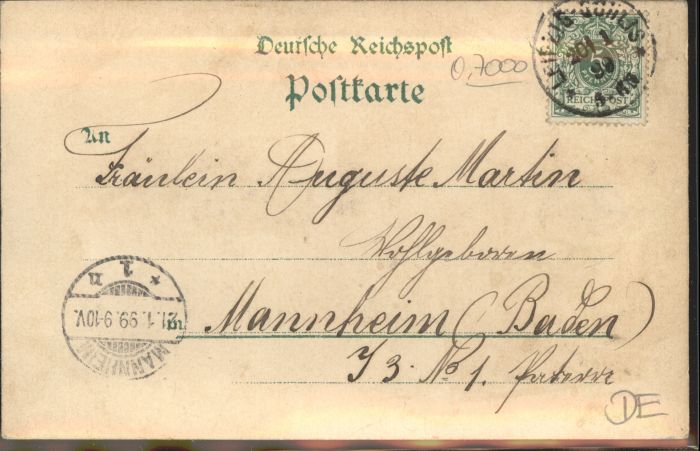 Deutsche Reichspost
Postkarte
0,7000
REICHSPOST
An
Fräulein Auguste Martin
Wohlgeboren
in Mannheim (Baden)
J 3 No 1. Parterre
* 1 n
21. 1. 99. 9-10V.
MANNHEIM
DE